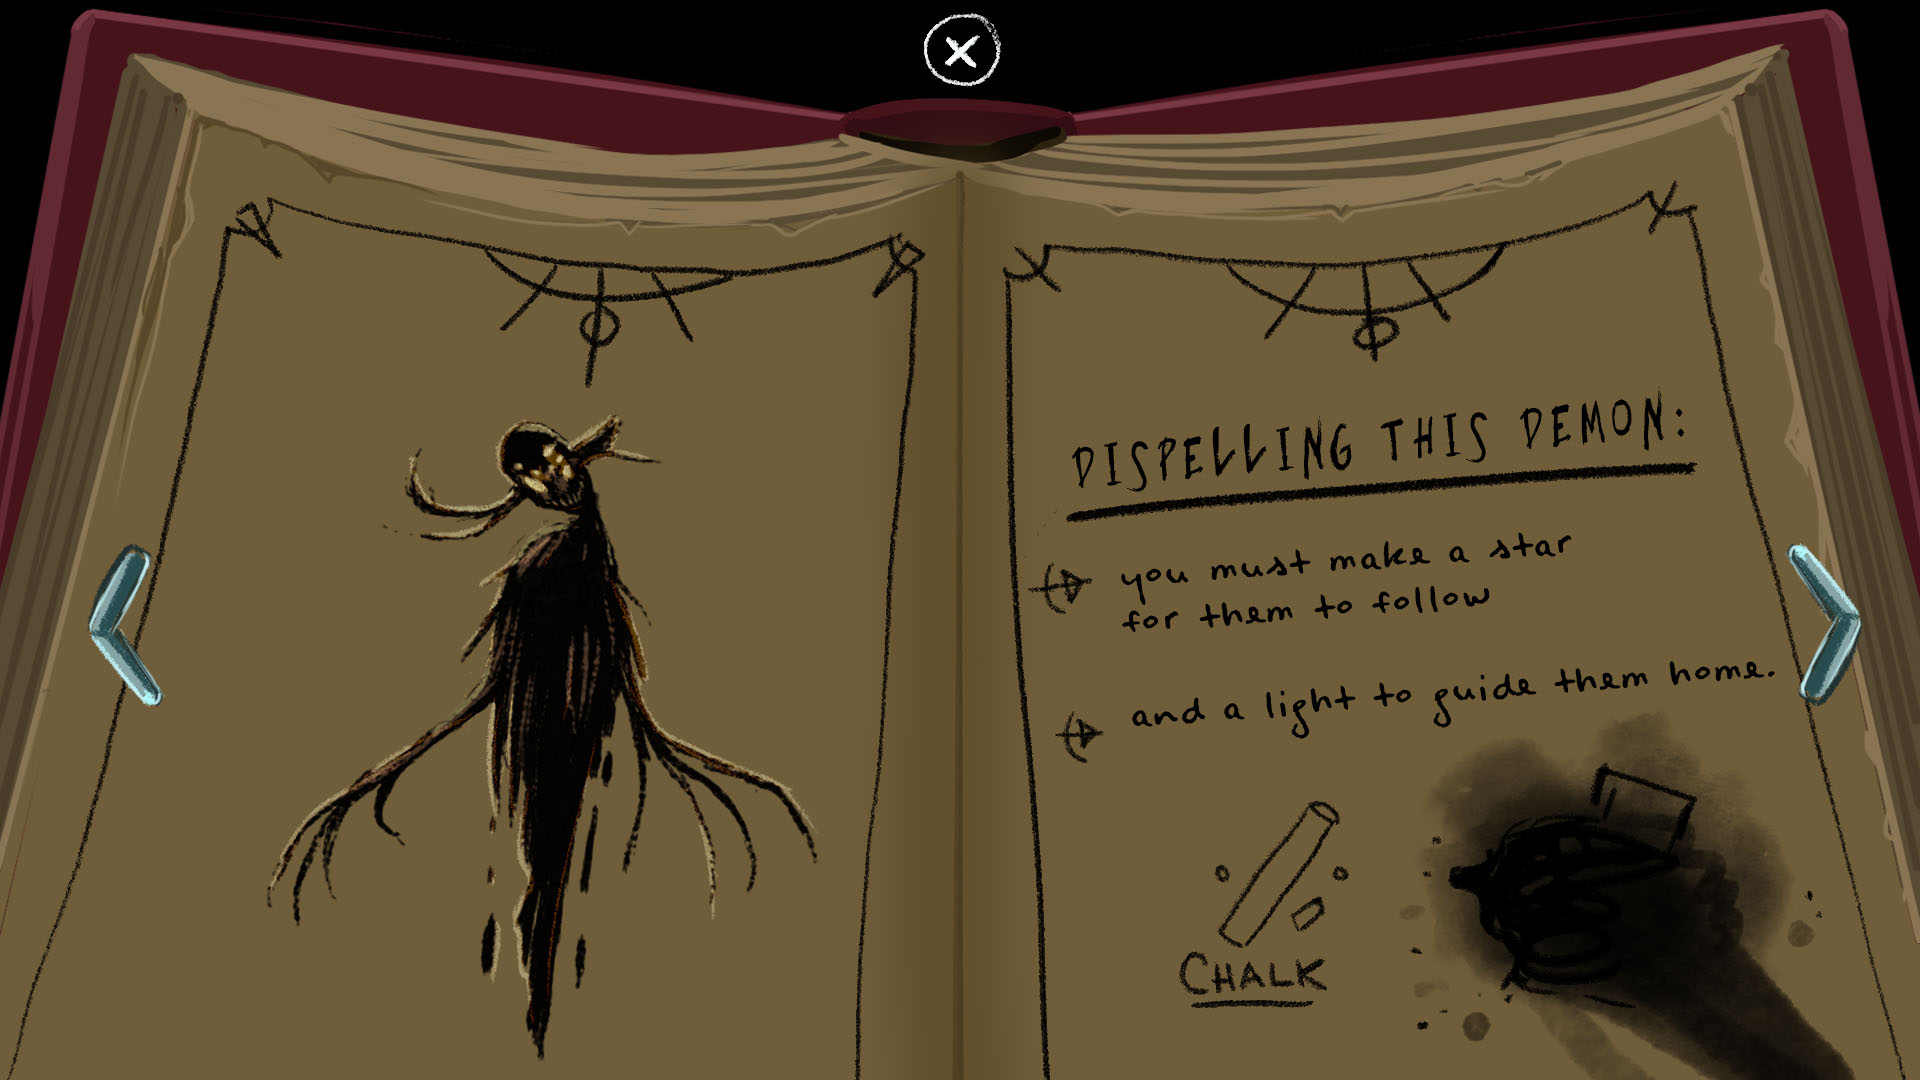 DISPELLING THIS DEMON:
you must make a star
for them to follow
and a light to guide them home.
CHALK